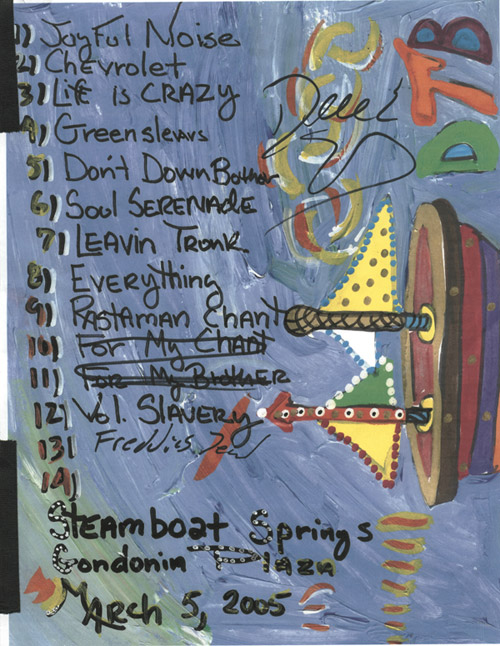 1) JoyFul Noise
2) Chevrolet
3) LiFe is CRAZY
4) Greensleavs
5) Don't Down Bother
6) Soul SERENADE
7) LEAVIN Trunk
8) Everything
9) RASTAMAN CHANT
10) For My CHANT
11) For My BROTHER
12) Vol. SLAVERY
13) Freddies Dead
14)
Steamboat Springs
Gondonin Plaza
MARCH 5, 2005
DTB